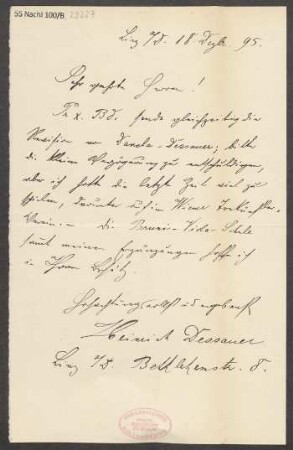 55 Nachl 100/B
Linz a/D. 18 Dezb. 95.
Sehr geehrte Herren!
Pr. x. Bd. sende gleichzeitig die
Revision von Dancla-Dessauer; bitte
die kleine Verzögerung zu entschuldigen,
aber ich hatte die letzte Zeit viel zu
spielen, darunter auch im Wiener Tonkünstler-
Verein. – die Bruni-Viola-Schule
samt meinen Ergänzungen hoffe ich
in Ihrem Besitz.
Hochachtungsvollst u ergebenst
Heinrich Dessauer
Linz a/D. Bethlehemstr. 8.